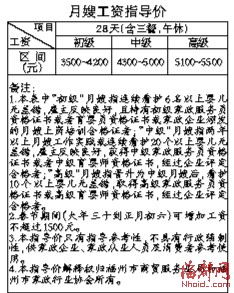 月嫂工资指导价
项目 28天(含三餐,午休)
工资 初级 中级 高级
区间(元) 3500~4200 4300~5000 5100~5500
备注:
1.本表中"初级"月嫂指连续看护6名以上婴儿
无差错,雇主反映良好,且持有初级家政服务员
资格证书或者育婴员资格证书,或家政企业颁发
的月嫂上岗培训合格证者;"中级"月嫂指两年
以上月嫂工作实践或连续看护20个以上婴儿无
差错,雇主反映良好,获得中级家政服务员资格
证书或者中级育婴师资格证书,经过企业评定
合格者;"高级"月嫂指晋升为中级月嫂后,看护
10个以上婴儿无差错,取得高级家政服务员资
格证书或高级育婴师资格证书,经过企业评定
合格者。
2.春节期间(大年三十到正月初六)可增加工资
不超过1500元。
3.本指导价只有指导参考性,不具有行政强制
性,供家政企业、家政从业人员及消费者参考使
用。
4.本指导价解释权归福州市商贸服务业局和福
州市家政行业协会所有。
海都网
Nhaidu.com